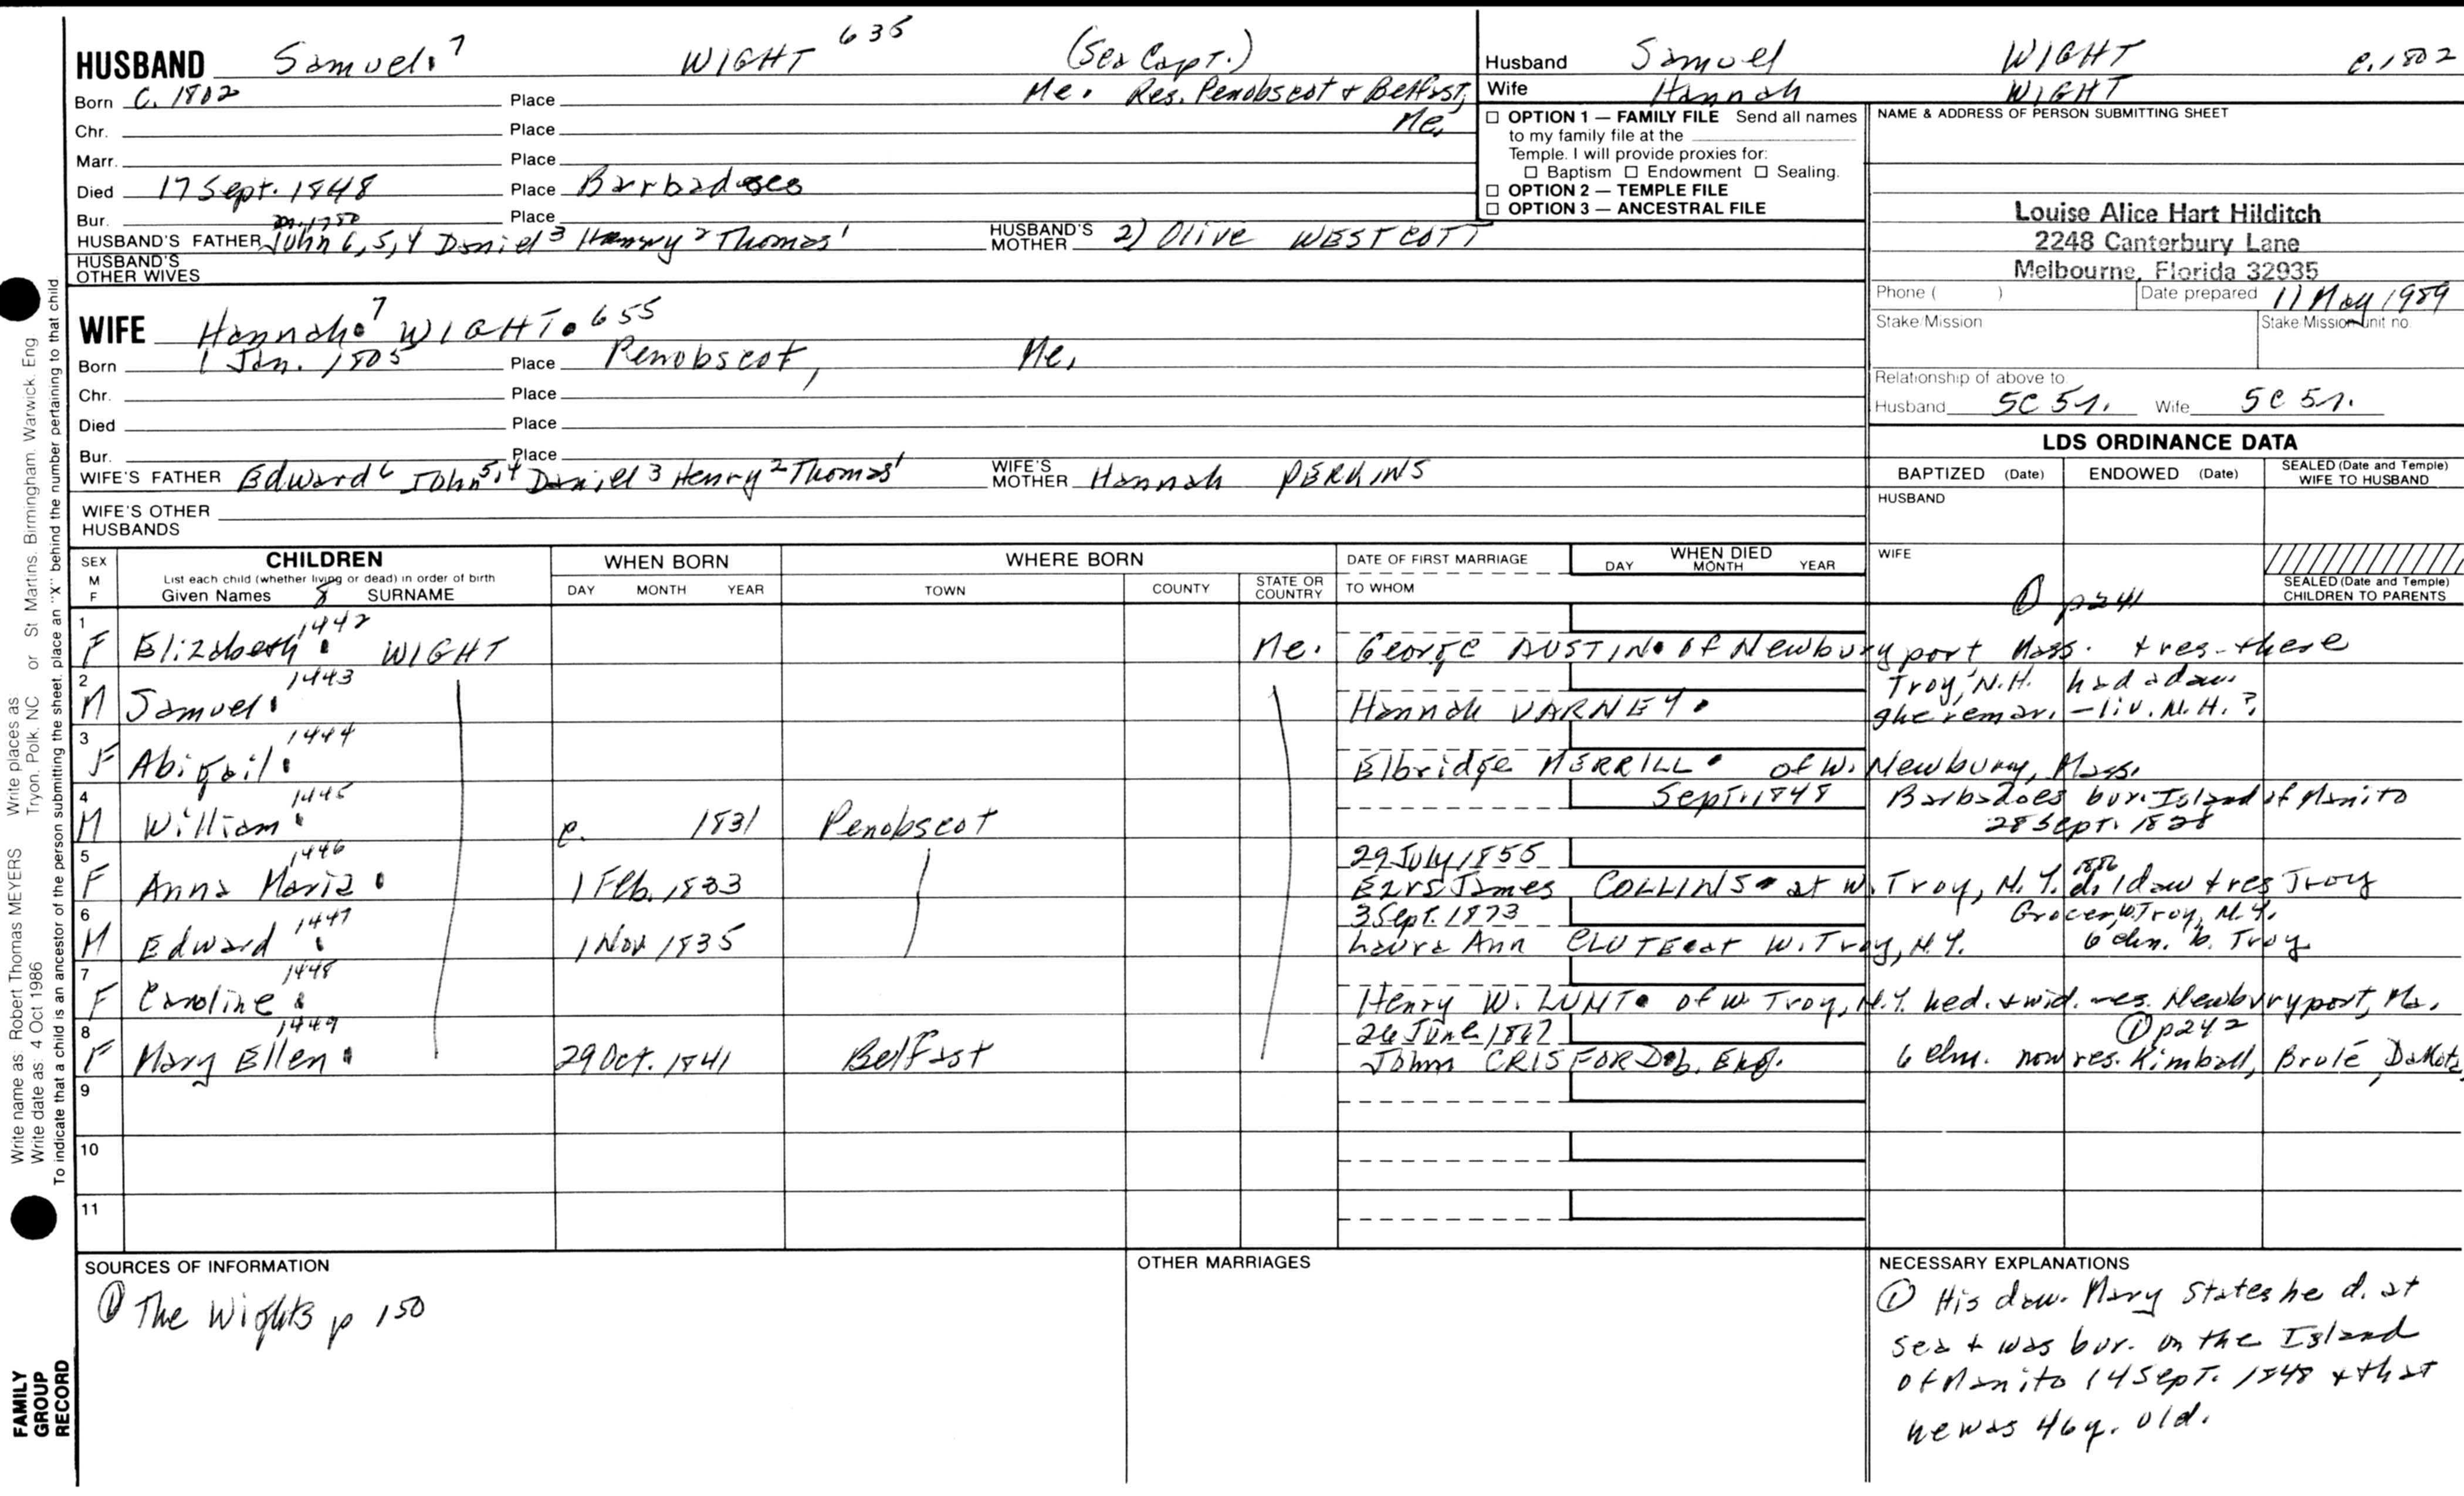 HUSBAND Samuel 7 WIGHT 635 (Sea Capt.)
Born C. 1802 Place Me. Res. Penobscot + Belfast,
Chr. Place Me.
Marr. Place
Died 17 Sept. 1848 Place Barbadoes
Bur. Place
m. 1782
HUSBAND'S FATHER John 6, 5, 4 Daniel 3 Henry 2 Thomas 1 HUSBAND'S MOTHER 2) Olive WESTCOTT
HUSBAND'S OTHER WIVES
Husband Samuel WIGHT c. 1802
Wife Hannah WIGHT
☐ OPTION 1 — FAMILY FILE Send all names
to my family file at the
Temple. I will provide proxies for:
☐ Baptism ☐ Endowment ☐ Sealing.
☐ OPTION 2 — TEMPLE FILE
☐ OPTION 3 — ANCESTRAL FILE
NAME & ADDRESS OF PERSON SUBMITTING SHEET
Louise Alice Hart Hilditch
2248 Canterbury Lane
Melbourne, Florida 32935
Phone ( ) Date prepared 11 May 1989
Stake/Mission Stake/Mission unit no.
Relationship of above to
Husband 5C 5r. Wife 5C 5r.
WIFE Hannah 7 WIGHT. 655
Born 1 Jan. 1805 Place Penobscot, Me.
Chr. Place
Died Place
Bur. Place
WIFE'S FATHER Edward 6 John 5,4 Daniel 3 Henry 2 Thomas 1 WIFE'S MOTHER Hannah PERKINS
WIFE'S OTHER HUSBANDS
LDS ORDINANCE DATA
BAPTIZED (Date) ENDOWED (Date) SEALED (Date and Temple) WIFE TO HUSBAND
HUSBAND
WIFE
SEALED (Date and Temple) CHILDREN TO PARENTS
① p241
SEX M F
CHILDREN
List each child (whether living or dead) in order of birth
Given Names 8 SURNAME
WHEN BORN
DAY MONTH YEAR
WHERE BORN
TOWN COUNTY STATE OR COUNTRY
DATE OF FIRST MARRIAGE
TO WHOM
WHEN DIED
DAY MONTH YEAR
1 F Elizabeth 1442 WIGHT Me. George AUSTIN. of Newburyport Mass. + res. there
2 M Samuel 1443 Hannah VARNEY. Troy, N.H. had a dau.
she remar. - liv. N.H.?
3 F Abigail 1444 Elbridge MERRILL. of W. Newbury, Mass.
4 M William 1445 c. 1831 Penobscot Sept. 1848 Barbadoes bur. Island of Manito
28 Sept. 1828
5 F Anna Maria 1446 1 Feb. 1833 29 July 1855
Ezra James COLLINS. at W. Troy, N.Y. 1886 d. 1 dau + res Troy
6 M Edward 1447 1 Nov 1835 3 Sept. 1873 Grocer, W. Troy, N.Y.
Laura Ann CLUTE at W. Troy, N.Y. 6 chn. b. Troy
7 F Caroline 1448 Henry W. LUNT. of W Troy, N.Y. he d. + wid. res. Newburyport, Ms.
8 F Mary Ellen 1449 29 Oct. 1841 Belfast 26 June 1862 ① p242
John CRISFORD b. Eng. 6 chn. now res. Kimball, Brulé, Dakota
9
10
11
SOURCES OF INFORMATION
① The Wights p 150
OTHER MARRIAGES
NECESSARY EXPLANATIONS
① His dau. Mary states he d. at
sea + was bur. on the Island
of Manito 14 Sept. 1848 + that
he was 46 y. old.
Write name as: Robert Thomas MEYERS Write places as Tryon, Polk, NC or St Martins, Birmingham, Warwick, Eng
Write date as: 4 Oct 1986
To indicate that a child is an ancestor of the person submitting the sheet, place an "X" behind the number pertaining to that child
FAMILY
GROUP
RECORD